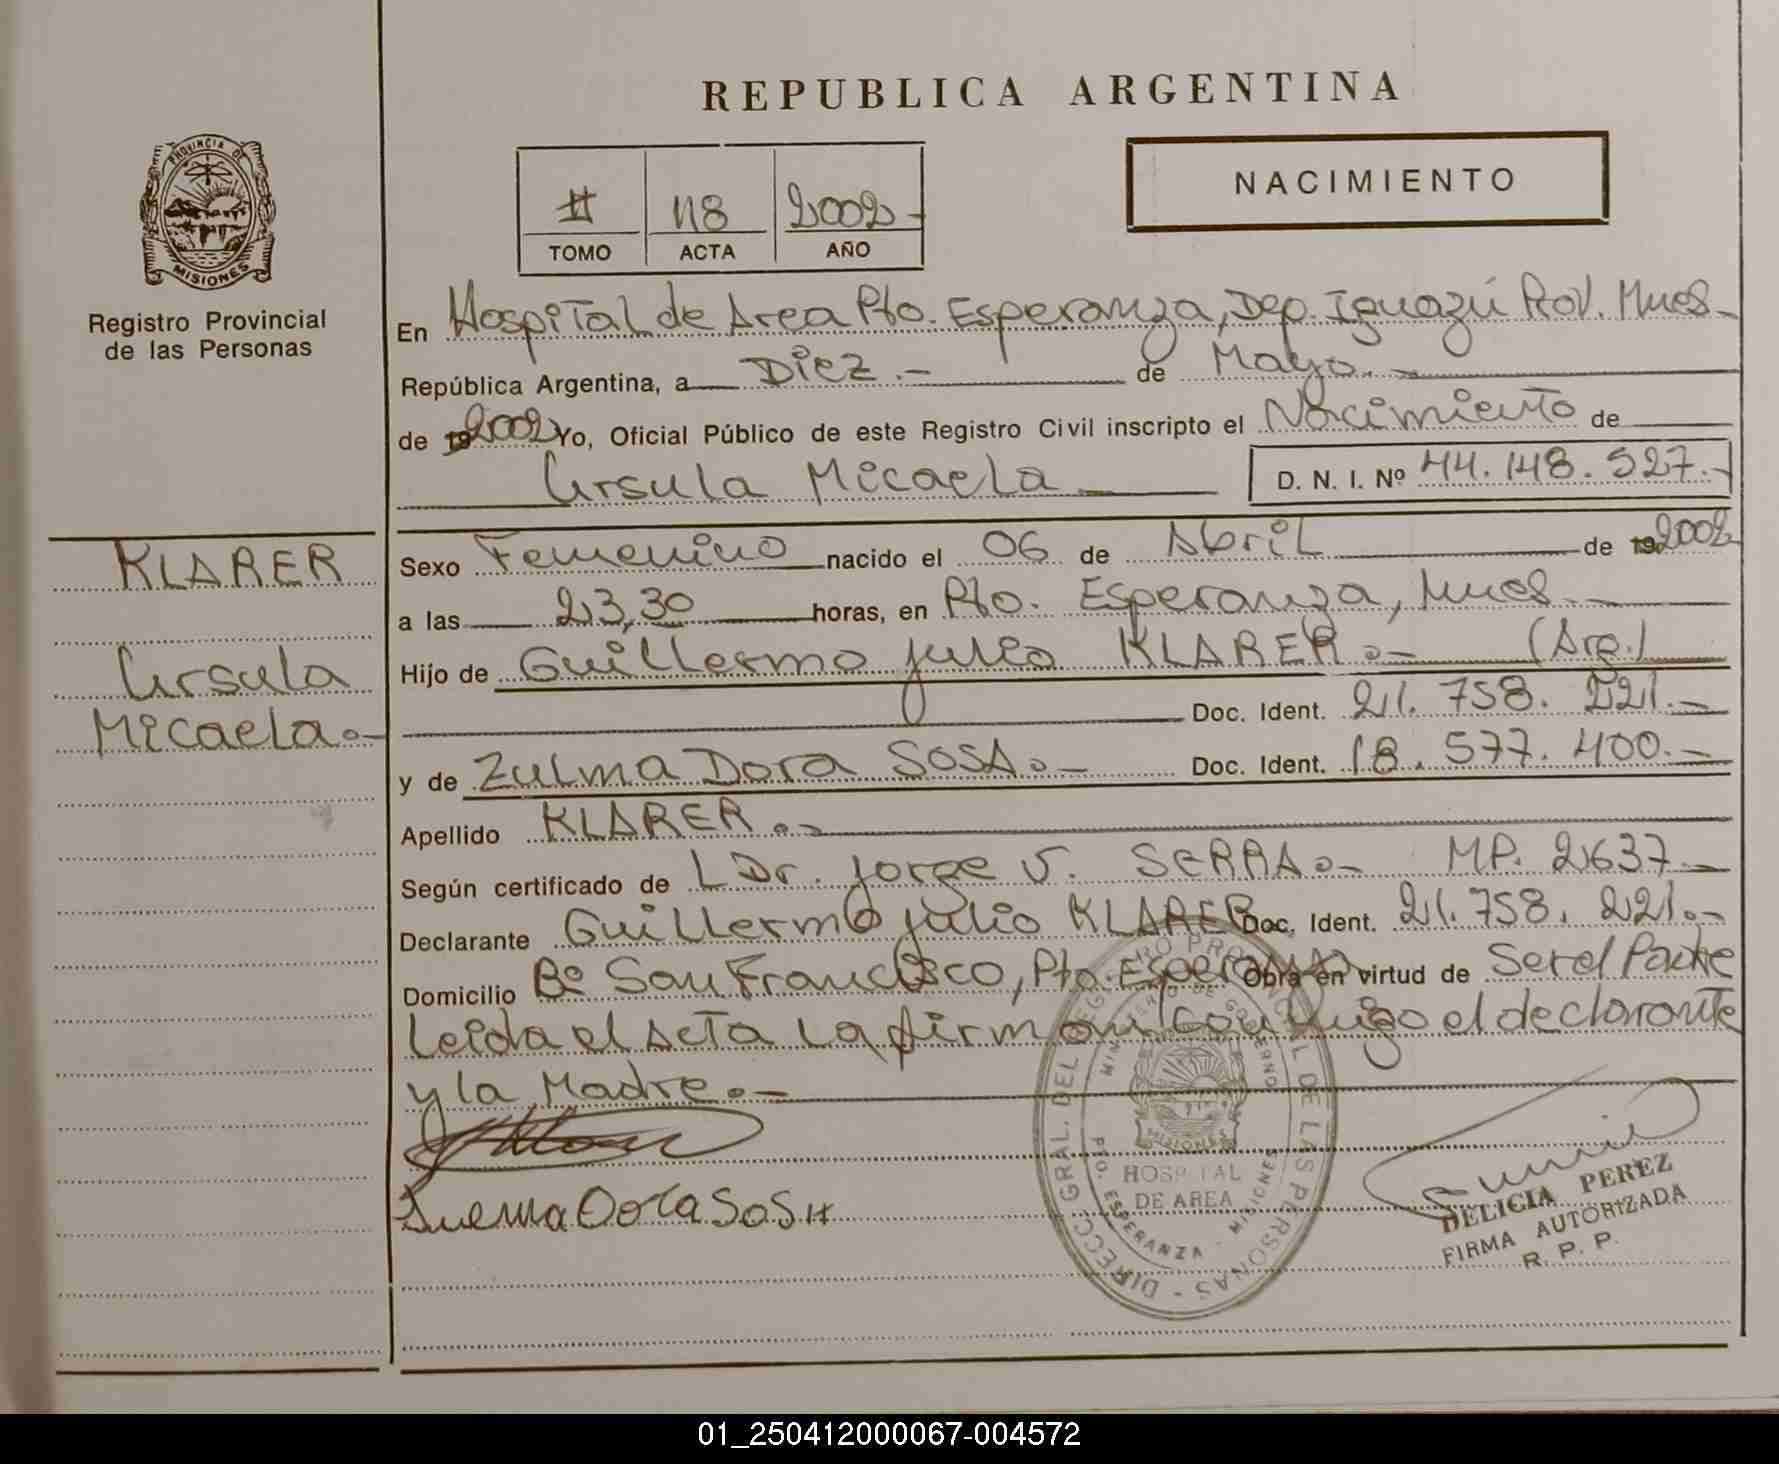 REPUBLICA ARGENTINA
PROVINCIA DE
MISIONES
Registro Provincial
de las Personas
# 118 2002
TOMO ACTA AÑO
NACIMIENTO
En Hospital de Area Pto. Esperanza, Dep. Iguazú Prov. Mnes
República Argentina, a Diez.- de Mayo.-
de 19 2002 Yo, Oficial Público de este Registro Civil inscripto el Nacimiento de
Ursula Micaela D. N. I. Nº 44.148.527.-
KLARER
Ursula
Micaela.-
Sexo Femenino nacido el 06 de Abril de 19 2002
a las 23,30 horas, en Pto. Esperanza, Mnes.
Hijo de Guillermo Julio KLARER.- (Arg.)
Doc. Ident. 21.758.221.-
y de Zulma Dora SOSA.- Doc. Ident. 18.577.400.-
Apellido KLARER.-
Según certificado de Dr. Jorge V. SERRA.- MP. 2637.-
Declarante Guillermo Julio KLARER Doc. Ident. 21.758.221.-
Domicilio Bº San Francisco, Pto. Esperanza Obra en virtud de Ser el Padre
Leida el Acta la firman conmigo el declarante
y la Madre.-
DIRECC. GRAL. DEL REGISTRO PROVINCIAL DE LAS PERSONAS
MINISTERIO DE GOBIERNO
MISIONES
HOSPITAL
DE AREA
PTO. ESPERANZA - MISIONES
DELICIA PEREZ
FIRMA AUTORIZADA
R. P. P.
01_250412000067-004572